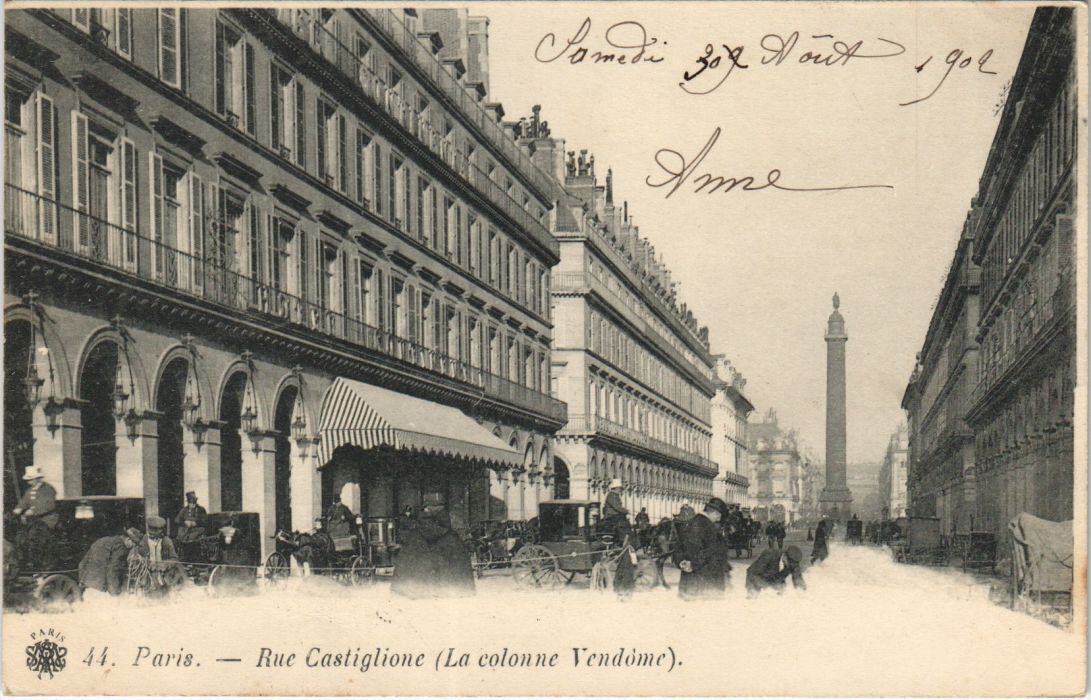 Samedi 30 Août 1902
Anne
PARIS
44. Paris. — Rue Castiglione (La colonne Vendôme).